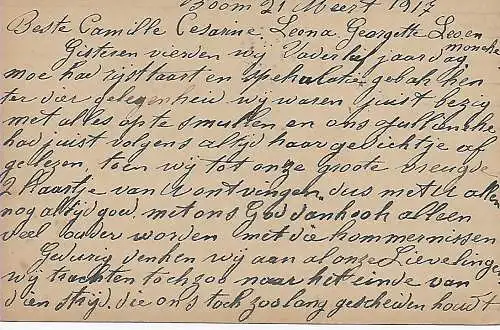 Boom 21 Meert 1917
Beste Camille Cesarine, Leona, Georgette Leo en
monche
Gisteren vierden wij Vaderlief jaardag
moe had rijsttaart en spekulatie gebakken
ter dier gelegenheid wij waren juist bezig
met alles op te smullen en ons Julianeke
had juist volgens altijd haar gedichtje af
gelezen, toen wij tot onze groote vreugde
2 kaartje van U ontvingen. dus met U allen
nog altijd goed. met ons God dank ook alleen
veel ouder worden met die kommernissen
Gedurig denken wij aan al onze Lieveling
wij trachten toch zoo naar het einde van
dien strijd. die ons toch zoo lang gescheiden houdt